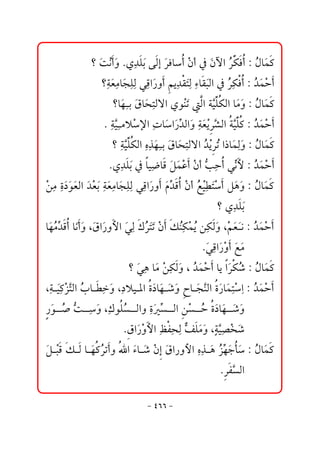 كَمَالُ : أُفَكِّرُ الآنَ فِي أنْ أُسافرَ إلَى بَلَدِي. وَأَنْتَ ؟
أَحْمَدُ : أُفكِرُ في البَقَاءِ لِتَقْدِيمِ أَورَاقِي لِلِجَامِعَةِ؟
كَمَالُ : وَمَا الكُلِّيَّة الَّتِي تَنْوي الالتِحَاقَ بـِهَا؟
أَحْمَدُ : كُلِّيَّةُ الشَّرِيْعَةِ وَالدِّرَاسَاتِ الإسْلاميَّةِ .
كَمَالُ : وَلِمَاذا تُرِيْدُ الالتِحَاقَ بـِهَذِهِ الكُلِّيَّةِ ؟
أَحْمَدُ : لأَنِّي أُحِبُّ أنْ أعْمَلَ قَاضِياً في بَلَدِي.
كَمَالُ : وَهَل أَسْتَطِيْعُ أنْ أقَدِّمَ أَورَاقِي لِلِجَامِعَةِ بَعْدَ العَودَةِ مِنْ
بَلَدِي ؟
أَحْمَدُ : نَـعَـمْ، وَلَكِن يُمْكِنُكَ أَنْ تَتْرُكَ لِيَ الأورَاقَ، وَأَنَا أُقَدِّمُهَا
مَعَ أَوْرَاقِيَ.
كَمَالُ : شُكْرَاً يا أَحْمَدُ ، وَلَكِنْ مَا هِيَ ؟
أَحْمَدُ : اِسْتِمَارَةُ النَّجَـاحِ وَشَـهَادَةُ المـيلادِ، وَخِطَـابُ التَّزْكِيَـةِ،
وَشَـــهَادَةُ حُـــسْنِ الـــسِّيْرَةِ والـــسُّلُوكِ، وَسِـــتُّ صُـــوَرٍ
شَخْصِيَّةٍ، وَمَلَفٌّ لِحِفْظِ الأَوْرَاقِ.
كَمَالُ : سَأُجَهِّزُ هَـذِهِ الأَوراقَ إنْ شَـاءَ اللهُ وأَتركُهَـا لَـكَ قَـبْـلَ
السَّفَرِ.
- ٤٦٦ -